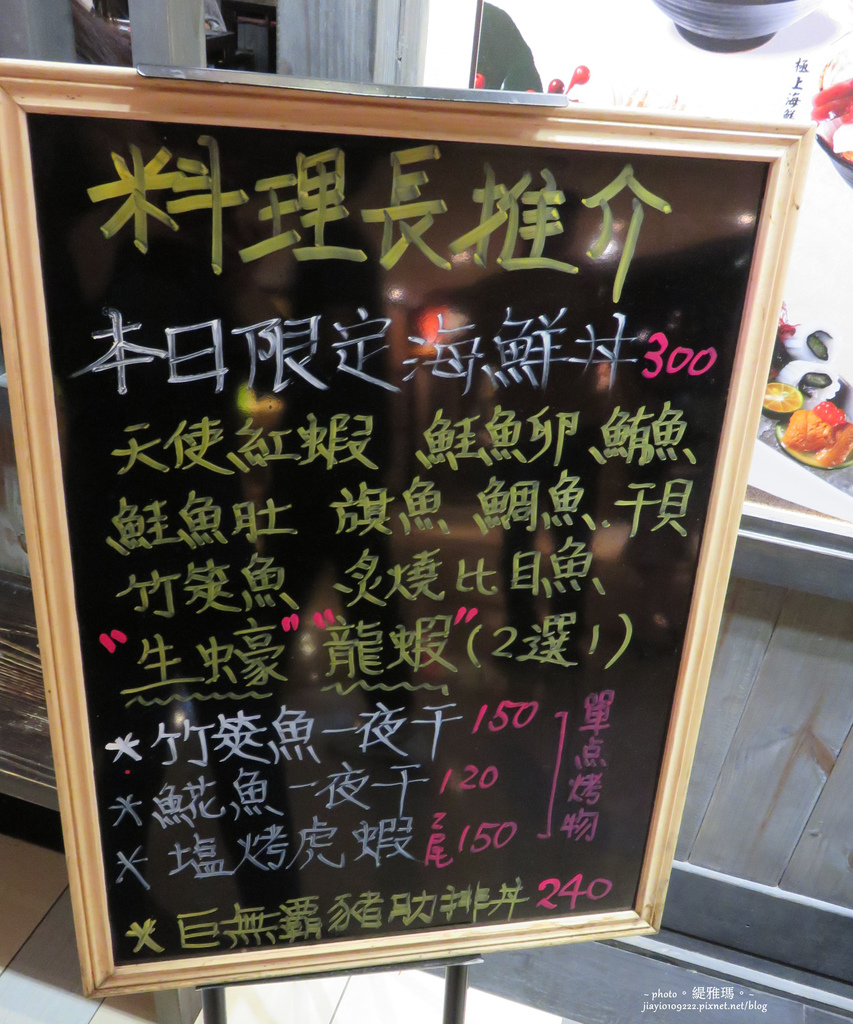 料理長推介
本日限定海鮮丼300
天使紅蝦 鮭魚卵 鮪魚
鮭魚肚 旗魚 鯛魚.干貝
竹筴魚 炙燒比目魚
"生蠔" "龍蝦"(2選1)
*竹筴魚一夜干 150
*魚花魚一夜干 120
*塩烤虎蝦 2尾 150
單点烤物
*巨無霸豬肋排丼 240
極上海鮮
~ photo。緹雅瑪。~
jiayio109222.pixnet.net/blog